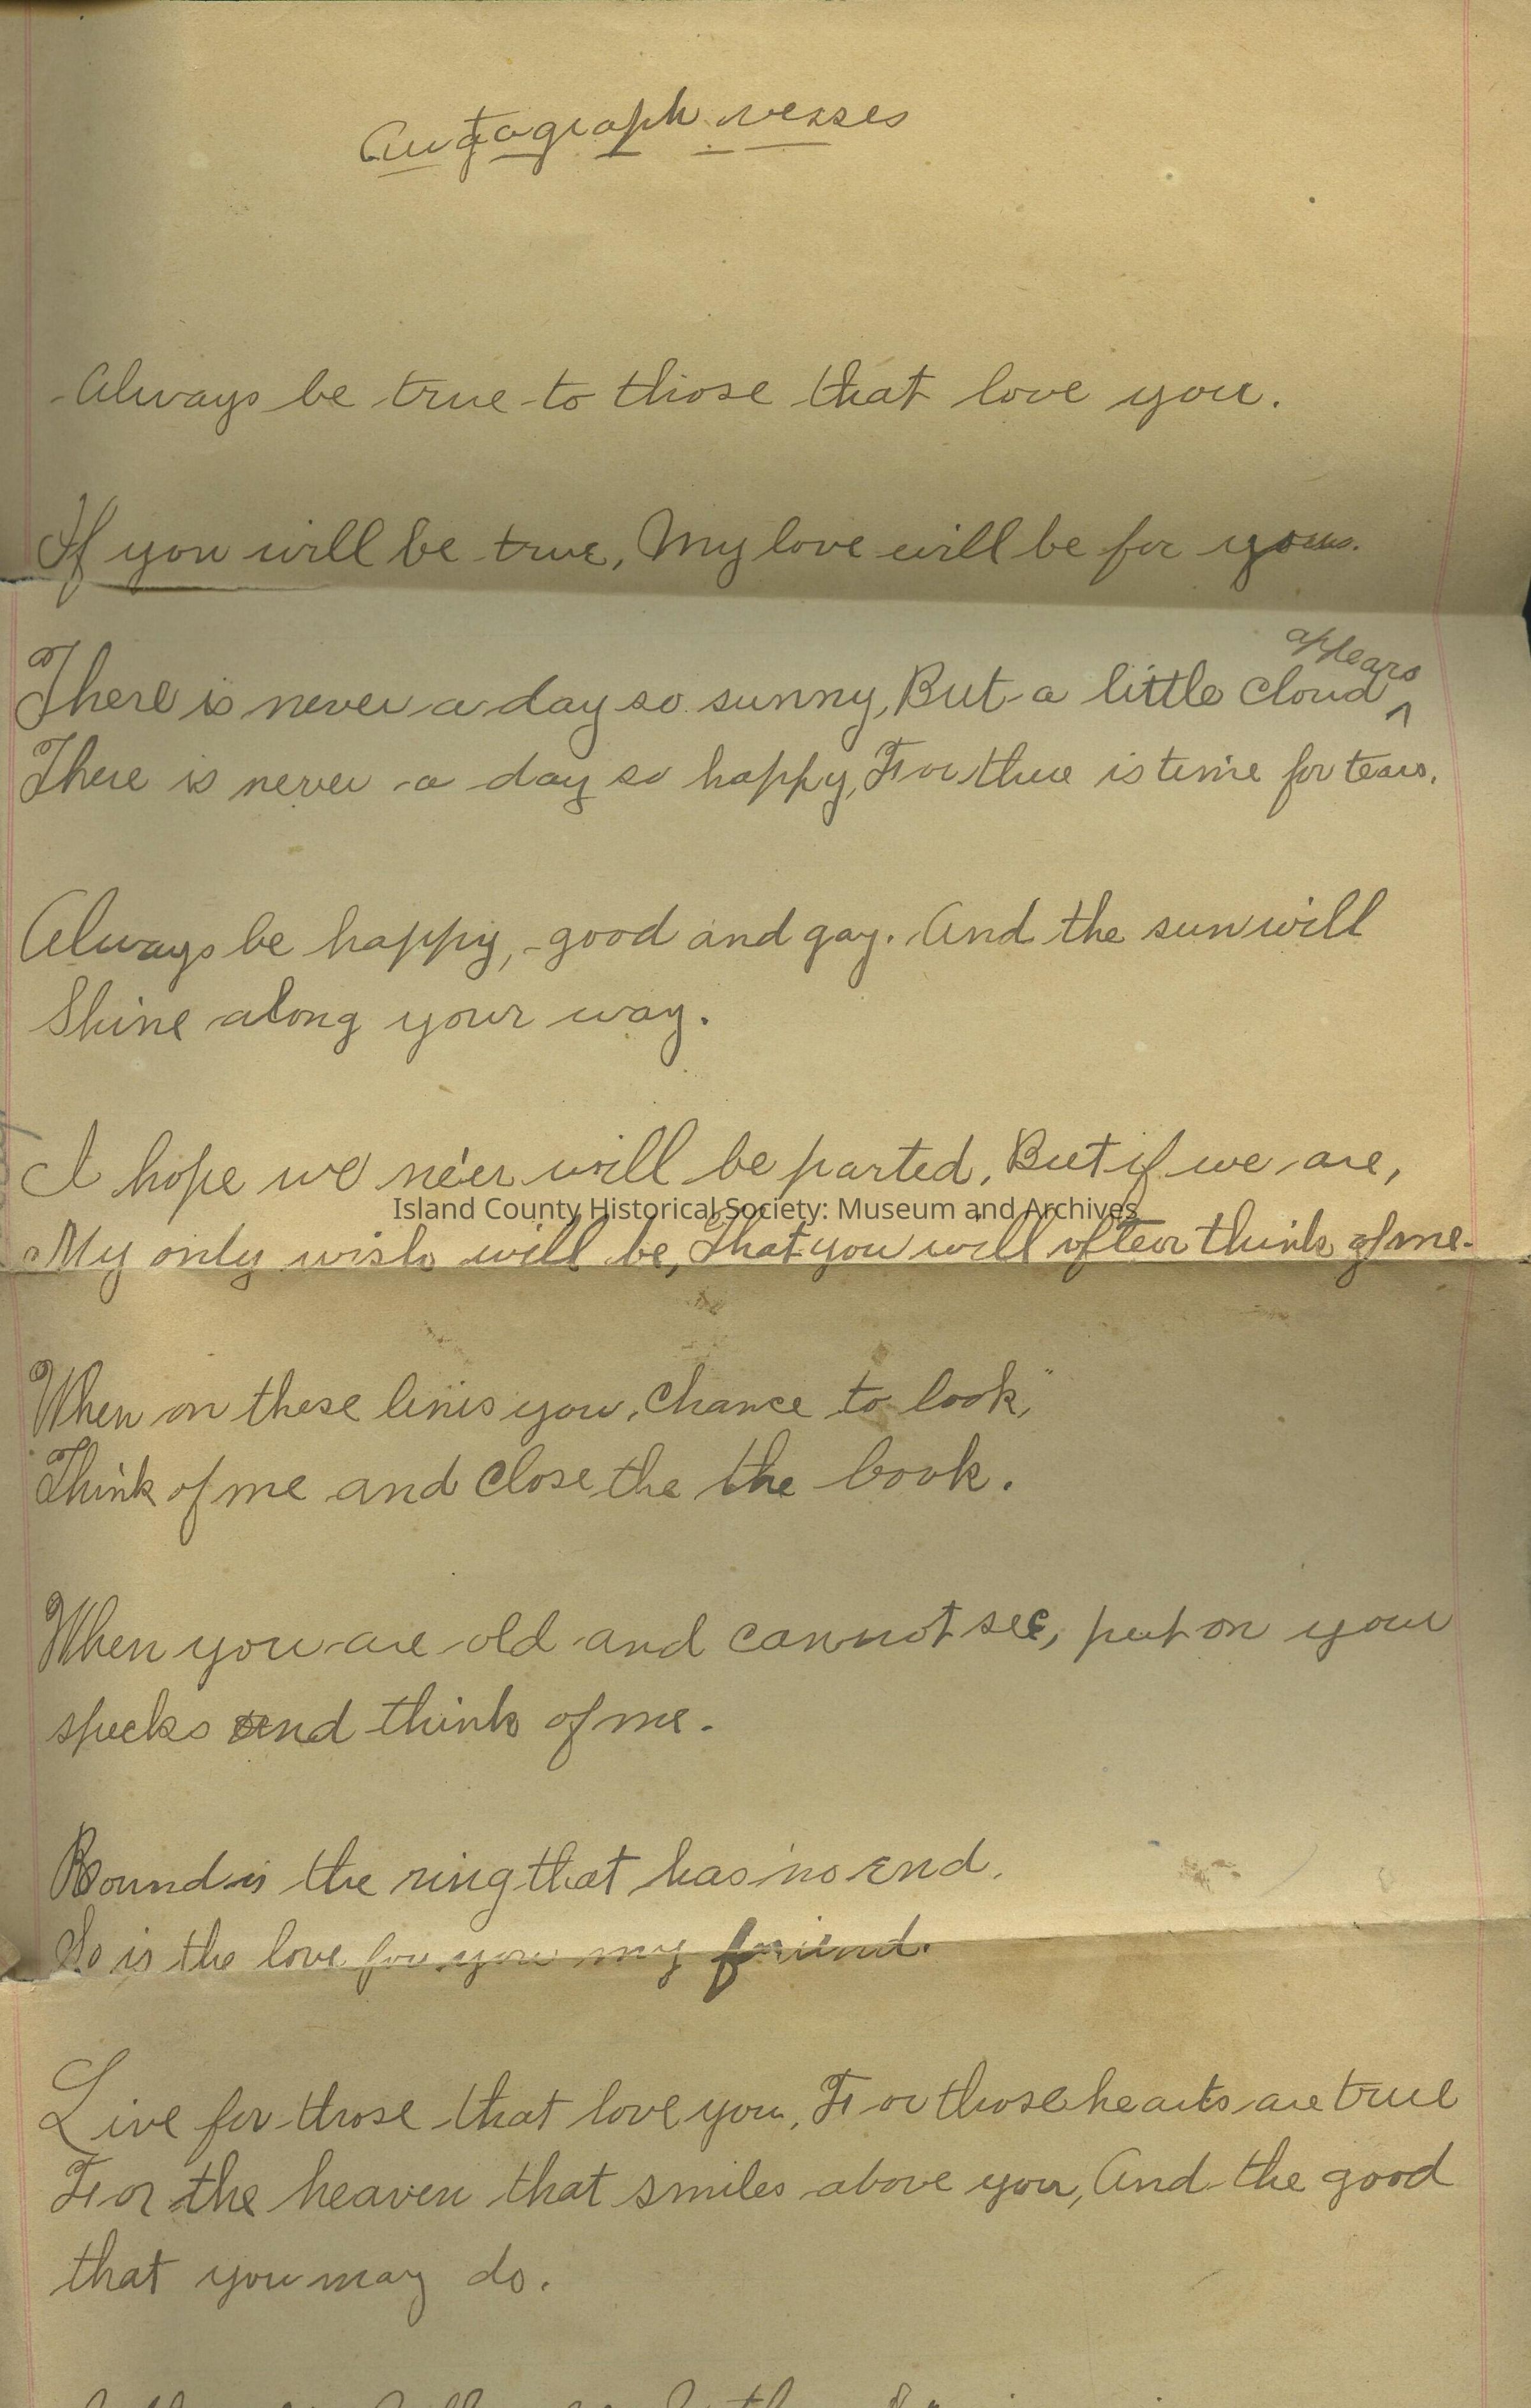 Autograph verses
Always be true to those that love you.
If you will be true, My love will be for you.
appears
There is never a day so sunny, But a little cloud ^
There is never a day so happy, For there is time for tears.
Always be happy, good and gay. And the sun will
Shine along your way.
I hope we né'er will be parted, But if we are,
Island County Historical Society: Museum and Archives
My only wish will be, That you will often think of me.
When on these lines you, Chance to look,"
Think of me and close the the book.
When you are old and cannot see, put on your
specks and think of me.
Round is the ring that has no end.
So is the love for you my friend.
Live for those that love you, For those hearts are true
For the heaven that smiles above you, And the good
that you may do.